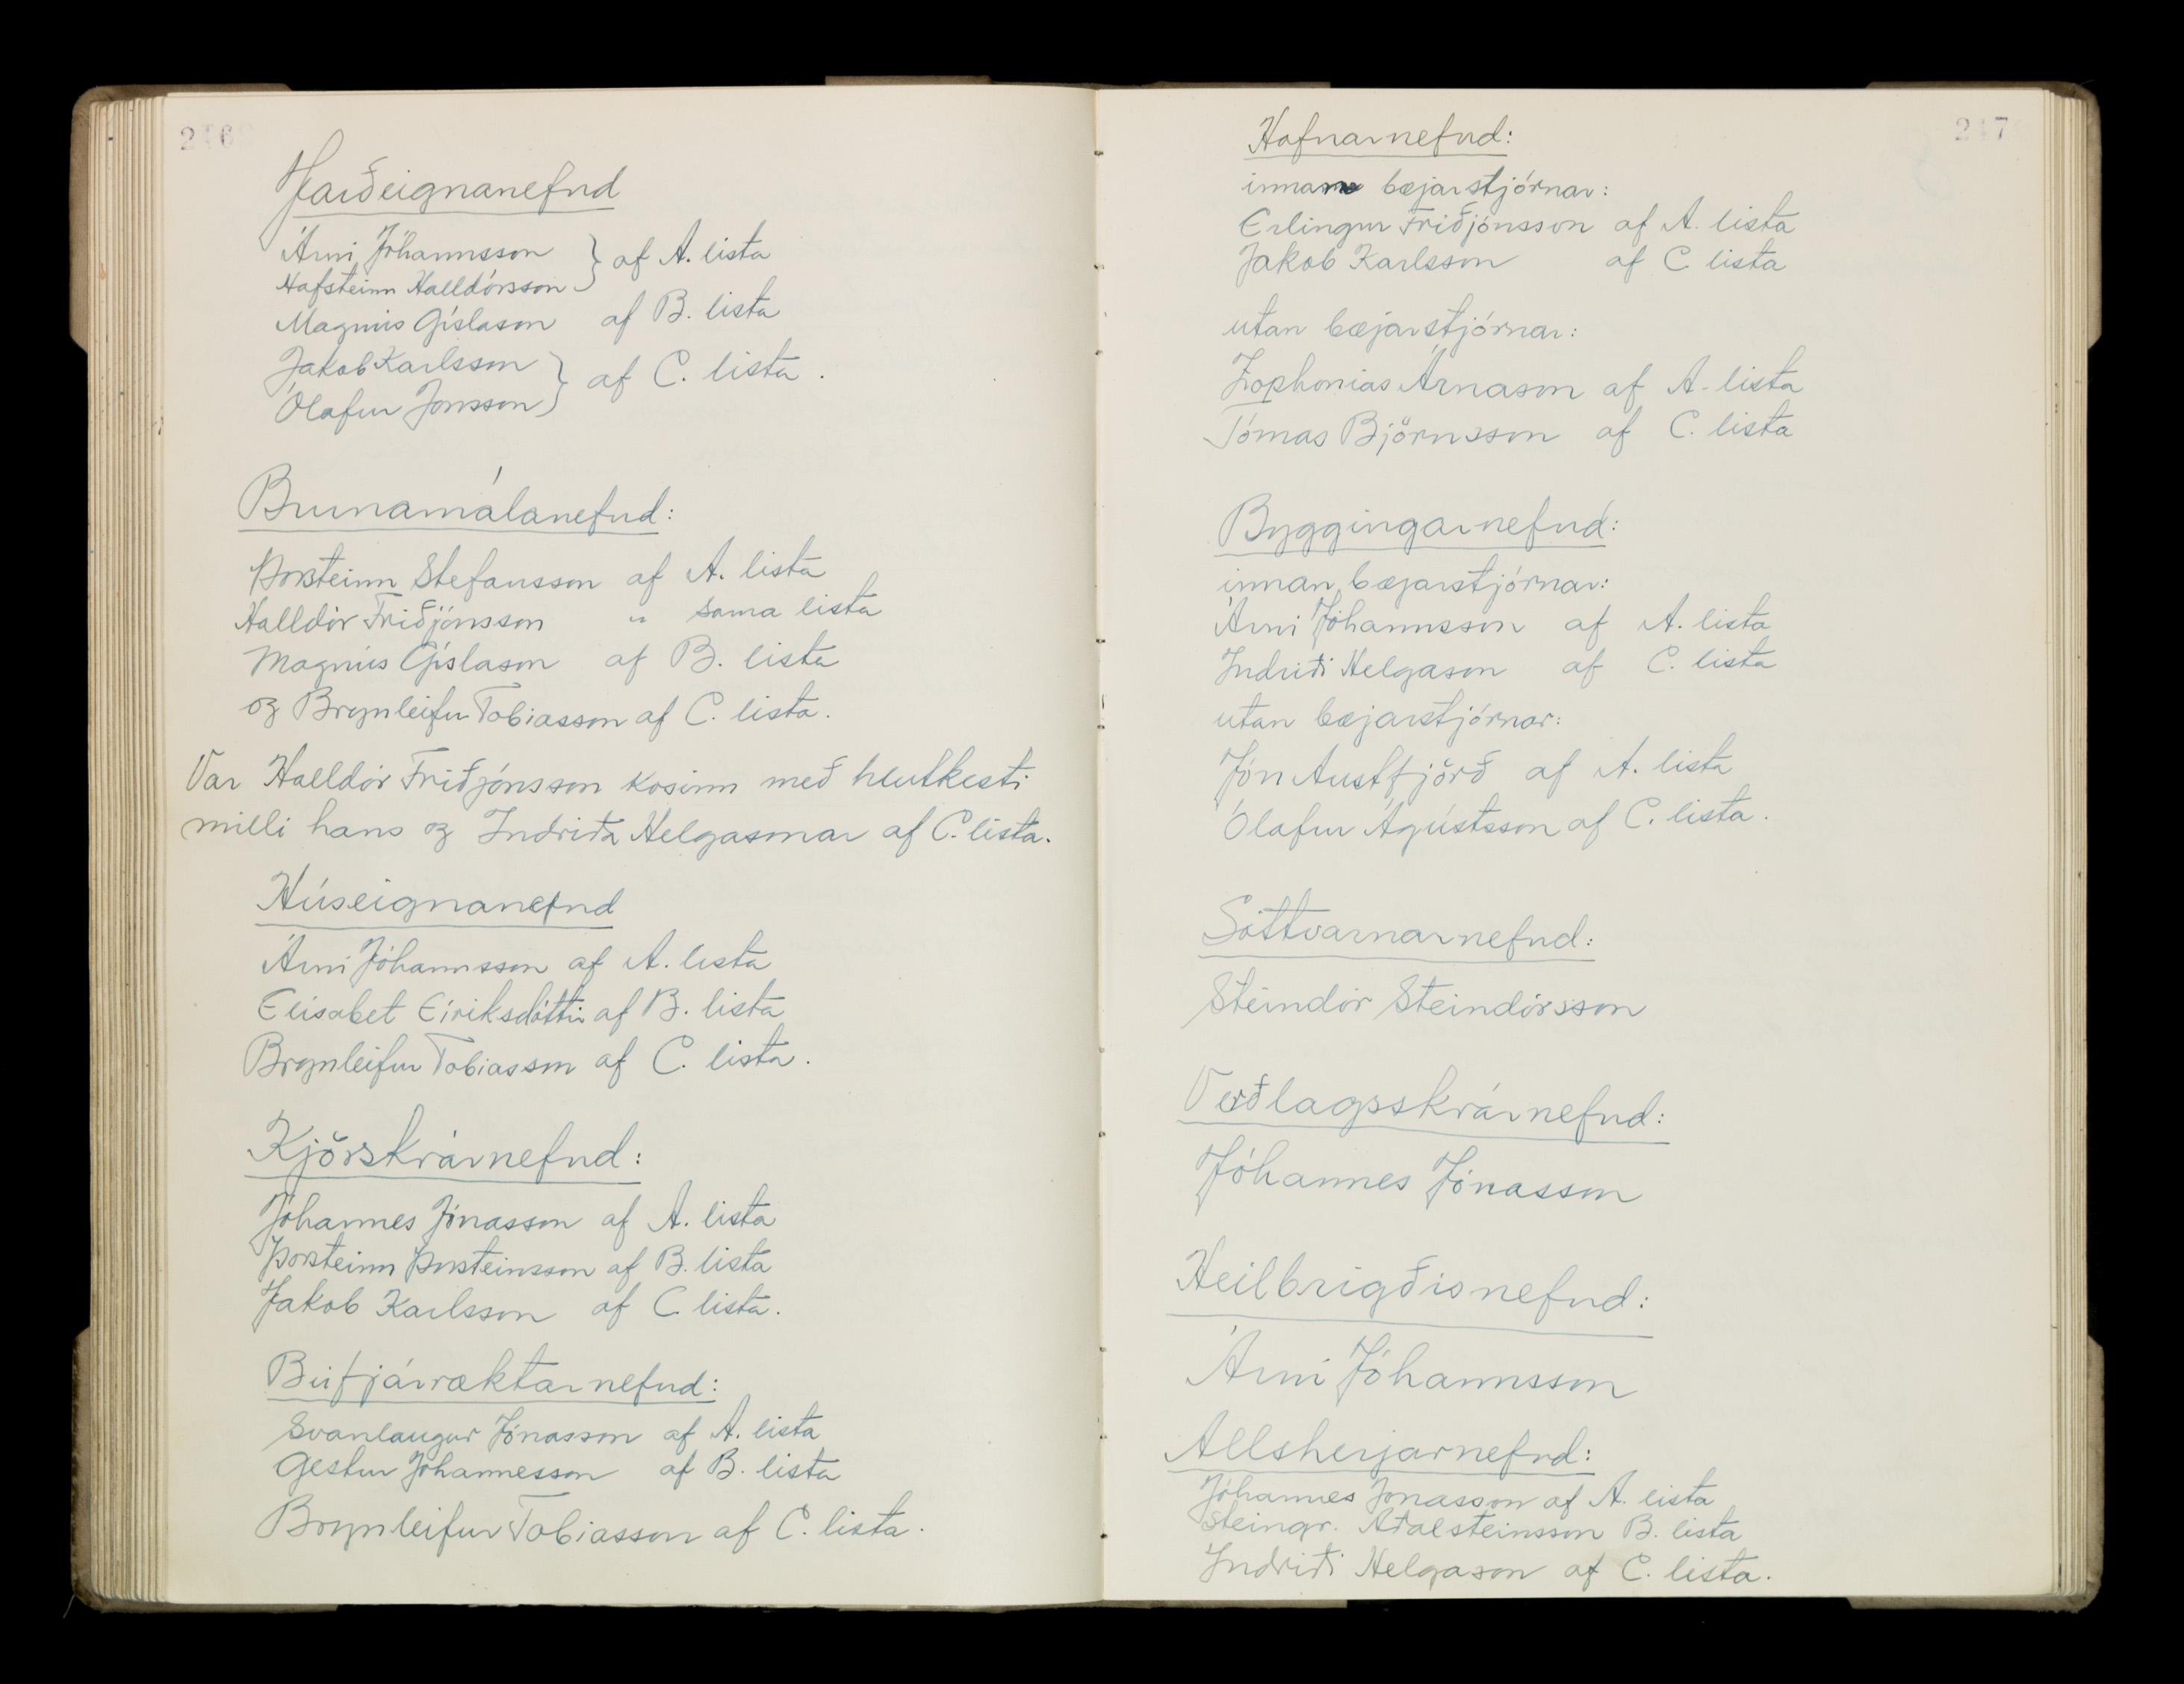 246
Jarðeignanefnd
Árni Jóhannsson } af A. lista
Hafsteinn Halldórsson
Magnús Gíslason af B. lista
Jakob Karlsson } af C. lista.
Ólafur Jónsson
Brunamálanefnd:
Þorsteinn Stefansson af A. lista
Halldór Friðjónsson " sama lista
Magnús Gíslason af B. lista
og Brynleifur Tobiasson af C. lista.
Var Halldór Friðjónsson kosinn með hlutkesti
milli hans og Indriða Helgasonar af C. lista.
Húseignanefnd
Árni Jóhannsson af A. lista
Elísabet Eiríksdóttir af B. lista
Brynleifur Tobiasson af C. lista.
Kjörskrárnefnd:
Jóhannes Jónasson af A. lista
Þorsteinn Þorsteinsson af B. lista
Jakob Karlsson af C lista.
Búfjárræktarnefnd:
Svanlaugur Jónasson af A. lista
Gestur Jóhannesson af B. lista
Brynleifur Tobiasson af C. lista.
247
Hafnarnefnd:
innan bæjarstjórnar:
Erlingur Friðjónsson af A. lista
Jakob Karlsson af C. lista
utan bæjarstjórnar:
Zophonias Árnason af A. lista
Tómas Björnsson af C. lista
Byggingarnefnd:
innan bæjarstjórnar:
Árni Jóhannsson af A. lista
Indriði Helgason af C. lista
utan bæjarstjórnar:
Jón Austfjörð af A. lista
Ólafur Ágústsson af C. lista.
Sóttvarnarnefnd:
Steindór Steindórsson
Verðlagsskrárnefnd:
Jóhannes Jónasson
Heilbrigðisnefnd:
Árni Jóhannsson
Allsherjarnefnd:
Jóhannes Jónasson af A. lista
Steingr. Aðalsteinsson B. lista
Indriði Helgason af C. lista.